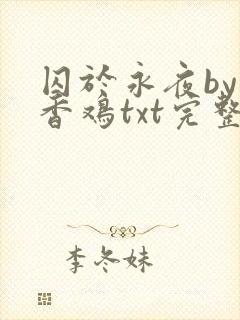 囚於永夜by
香鸡txt完整
李冬妹